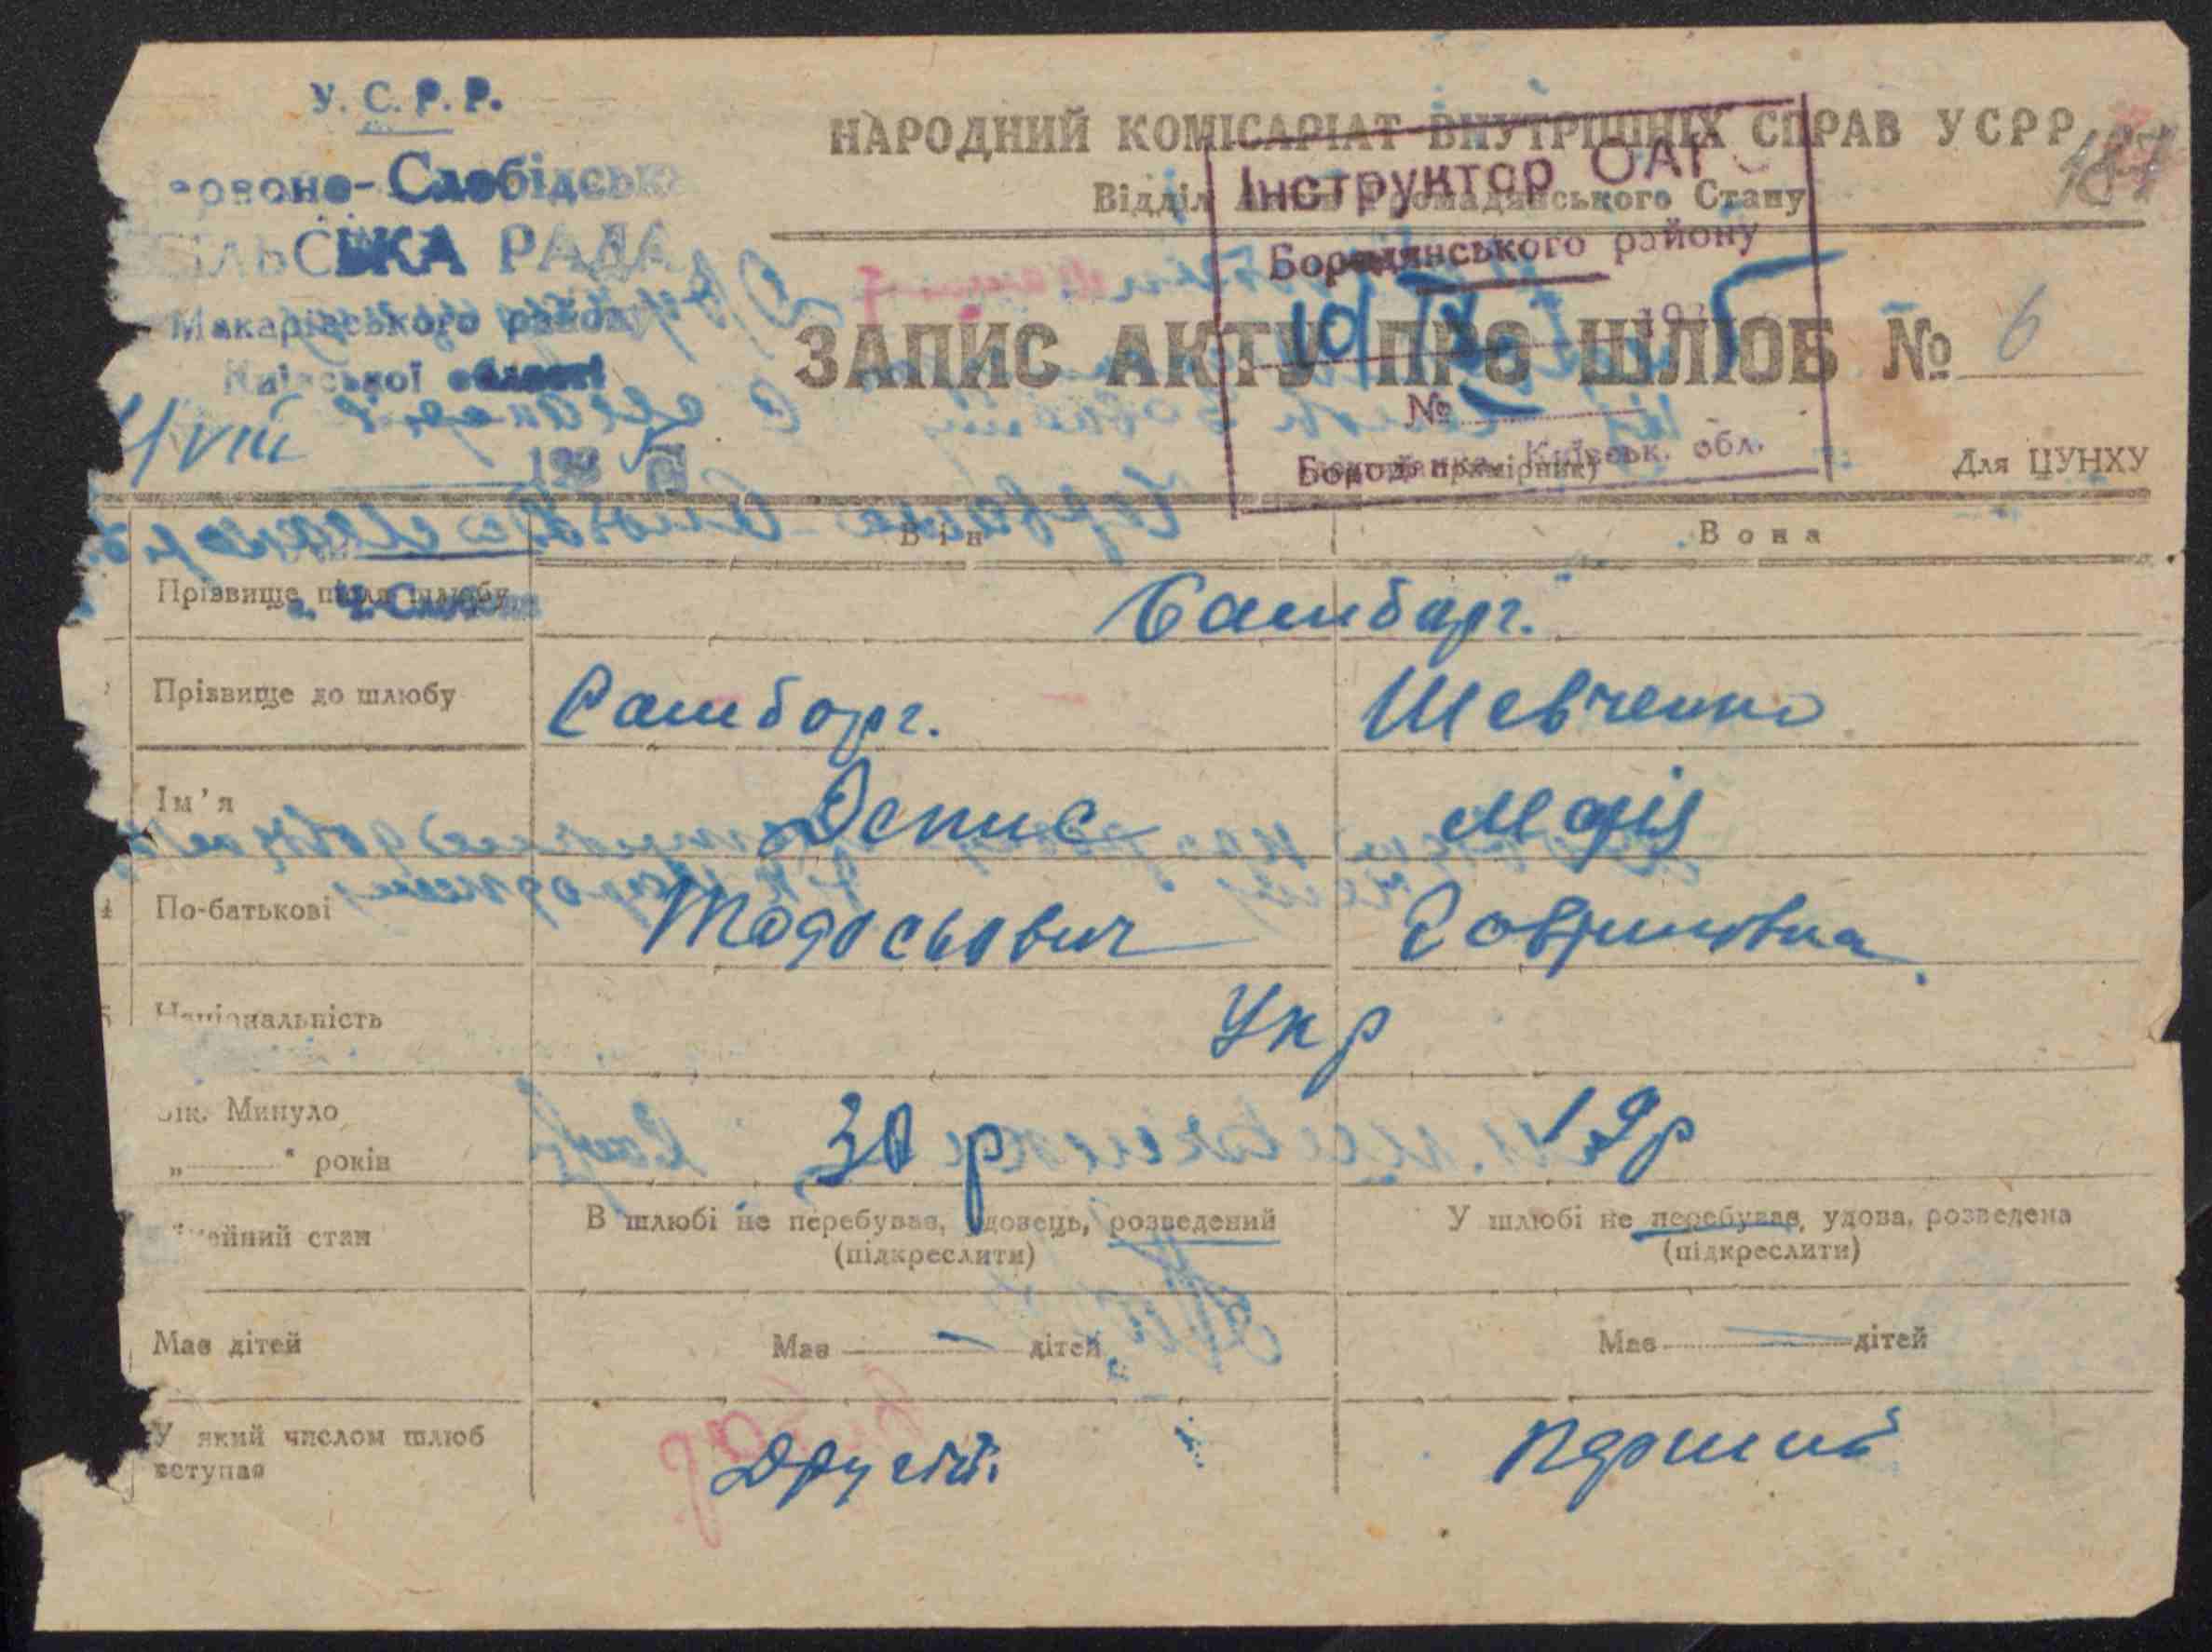 У. С. Р. Р.
Слобідськ
СІЛЬСЬКА РАДА
Макарівського району
Київської області
VIII 193 5
НАРОДНИЙ КОМІСАРІАТ ВНУТРІШНІХ СПРАВ УСРР
187
Відділ Актів Громадянського Стану
Інструктор ОАГС
Бородянського району
10/IX 1935
№
Бородянка, Київськ. обл.
ЗАПИС АКТУ ПРО ШЛЮБ № 6
примірник)
Для ЦУНХУ
Він Вона
Прізвище після шлюбу Самборг.
Прізвище до шлюбу Самборг. Шевченко
Ім'я Денис Марія
4 По-батькові Тодосьович Говриловна
5 Національність Укр
Вік. Минуло 30 р 19 р
„ “ років
стан В шлюбі не перебував, удовець, розведений У шлюбі не перебував, удова, розведена
(підкреслити) (підкреслити)
Має дітей Має — дітей Має — дітей
У який числом шлюб Другій. Перший
вступає